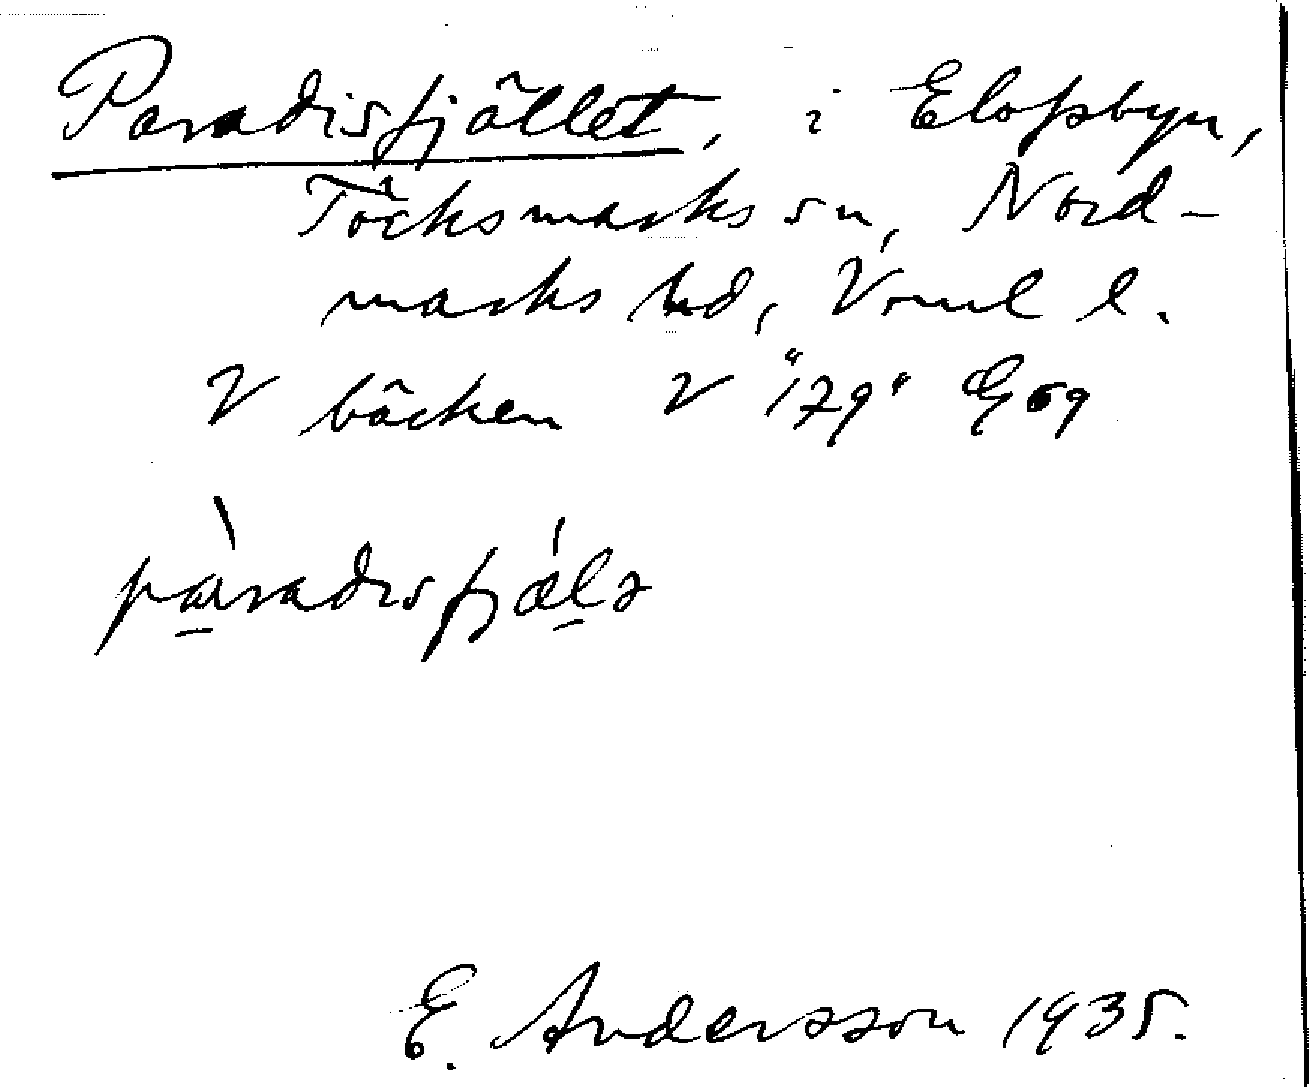 Paradisfjället, i Elofsbyn,
Töcksmarks sn, Nord-
marks hd, Vrml l.
V bäcken V "179" Eg 69
pàradisfjǽlə
E. Andersson 1935.